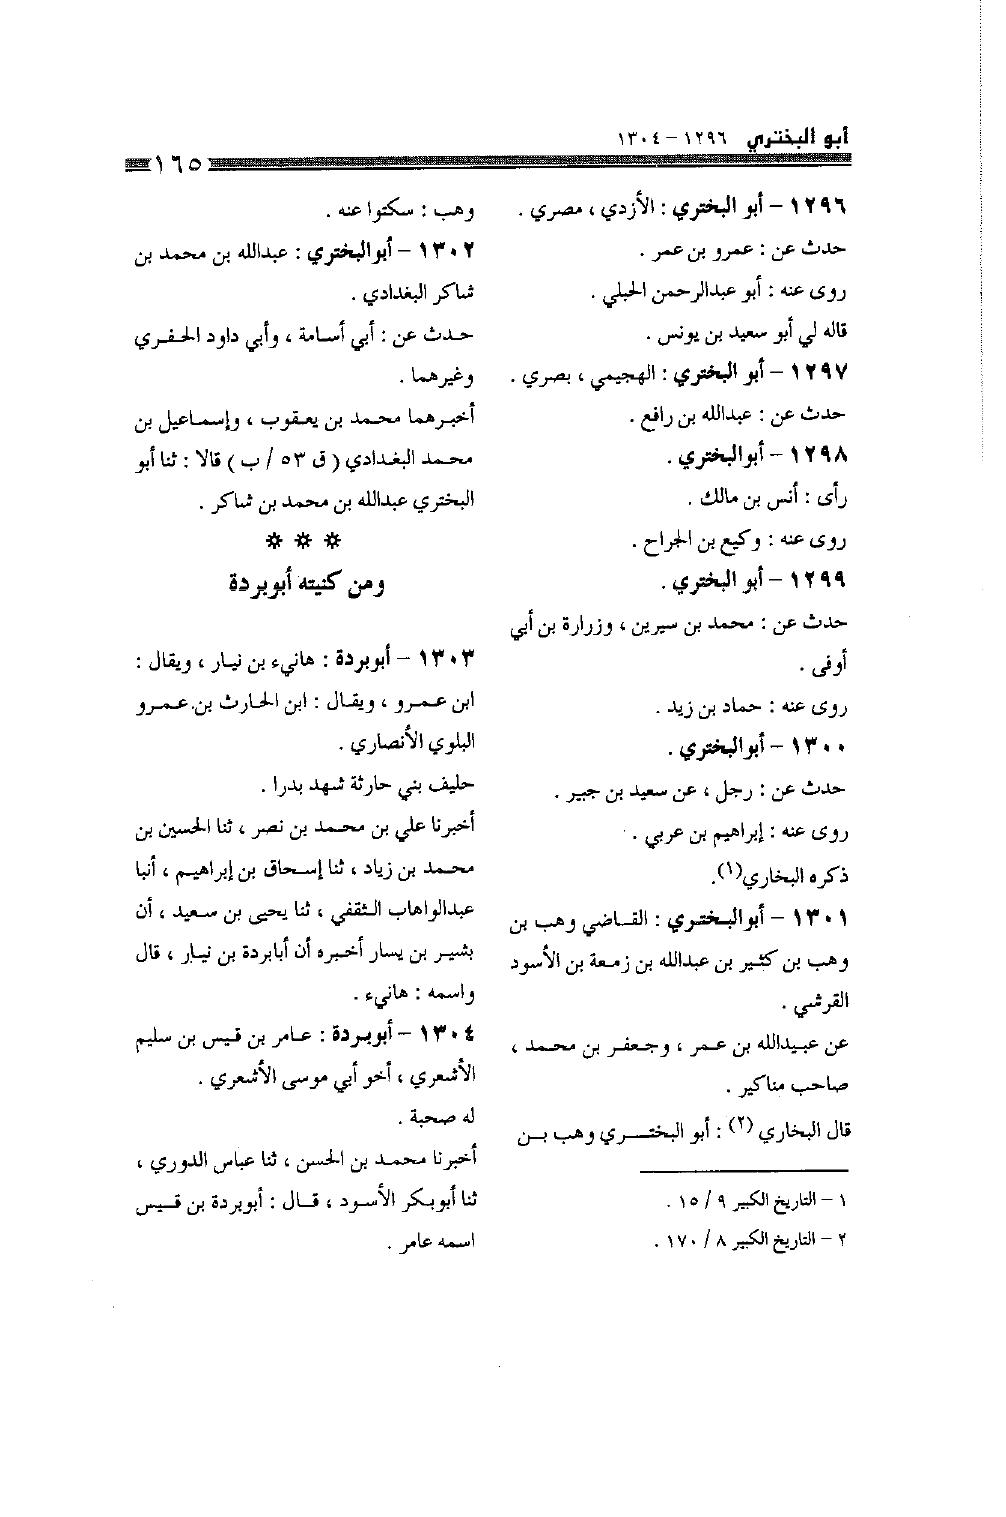 أبو البختري ١٢٩٦ - ١٣٠٤
١٦٥
١٢٩٦ - أبو البختري : الأزدي ، مصري .
حدث عن : عمرو بن عمر .
روى عنه : أبو عبدالرحمن الحبلي .
قاله لي أبو سعيد بن يونس .
١٢٩٧ - أبو البختري : الهجيمي ، بصري .
حدث عن : عبدالله بن رافع .
١٢٩٨ - أبوالبختري .
رأى : أنس بن مالك .
روى عنه : وكيع بن الجراح .
١٢٩٩ - أبو البختري .
حدث عن : محمد بن سيرين ، وزرارة بن أبي
أوفى .
روى عنه : حماد بن زيد .
١٣٠٠ - أبوالبختري .
حدث عن : رجل ، عن سعيد بن جبير .
روى عنه : إبراهيم بن عربي .
ذكره البخاري(١).
١٣٠١ - أبوالبختري : القاضي وهب بن
وهب بن كثير بن عبدالله بن زمعة بن الأسود
القرشي .
عن عبيدالله بن عمر ، وجعفر بن محمد ،
صاحب مناكير .
قال البخاري (٢) : أبو البختري وهب بن
١ - التاريخ الكبير ٩ / ١٥ .
٢ - التاريخ الكبير ٨ / ١٧٠ .
وهب : سكتوا عنه .
١٣٠٢ - أبوالبختري : عبدالله بن محمد بن
شاكر البغدادي .
حدث عن : أبي أسامة ، وأبي داود الحفري
وغيرهما .
أخبرهما محمد بن يعقوب ، وإسماعيل بن
محمد البغدادي ( ق ٥٣ / ب ) قالا : ثنا أبو
البختري عبدالله بن محمد بن شاكر .
* * *
ومن كنيته أبوبردة
١٣٠٣ - أبوبردة : هانيء بن نيار ، ويقال :
ابن عمرو ، ويقال : ابن الحارث بن عمرو
البلوي الأنصاري .
حليف بني حارثة شهد بدرا .
أخبرنا علي بن محمد بن نصر ، ثنا الحسين بن
محمد بن زياد ، ثنا إسحاق بن إبراهيم ، أنبا
عبدالواهاب الثقفي ، ثنا يحيى بن سعيد ، أن
بشير بن يسار أخبره أن أبابردة بن نيار ، قال
واسمه : هانيء .
١٣٠٤ - أبوبردة : عامر بن قيس بن سليم
الأشعري ، أخو أبي موسى الأشعري .
له صحبة .
أخبرنا محمد بن الحسن ، ثنا عباس الدوري ،
ثنا أبوبكر الأسود ، قال : أبوبردة بن قيس
اسمه عامر .